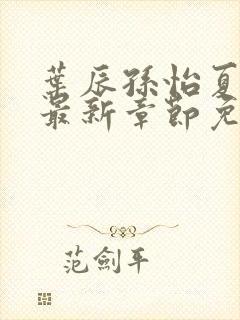 葉辰孫怡夏
最新章節免
范劍平